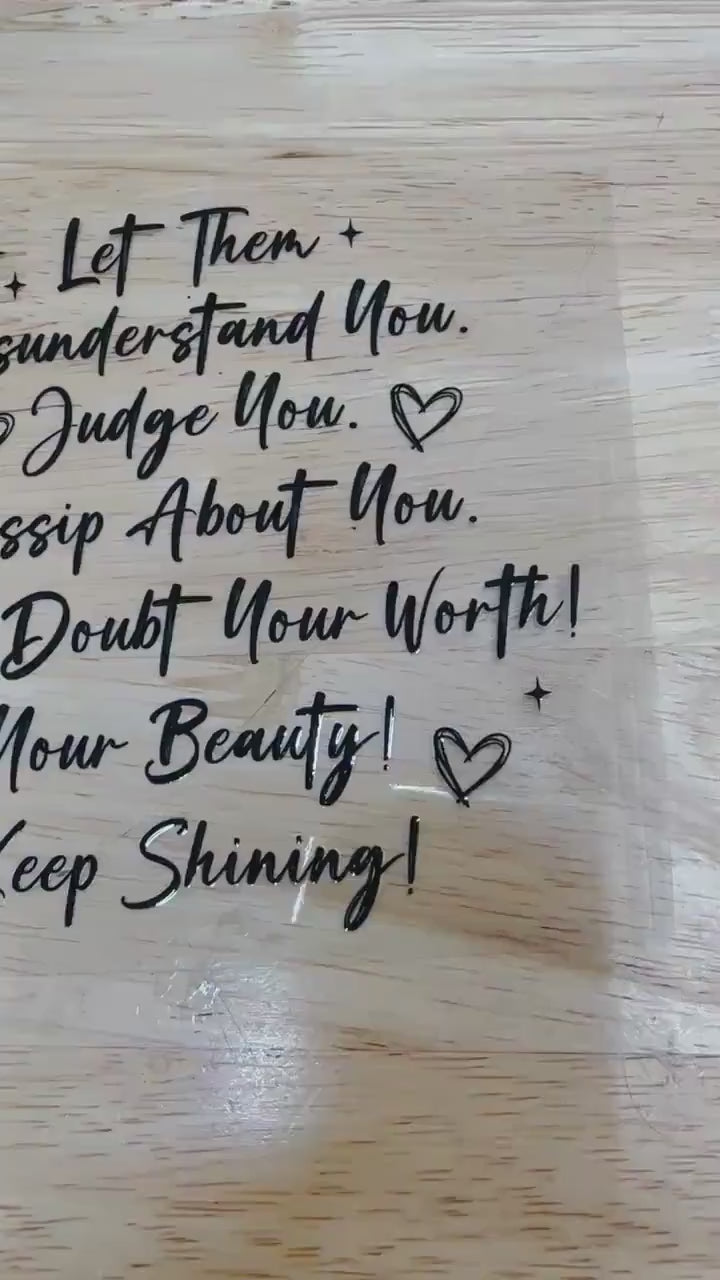 Let Them
sunderstand You.
Judge You.
ssip About You.
Doubt Your Worth!
Your Beauty!
Keep Shining!